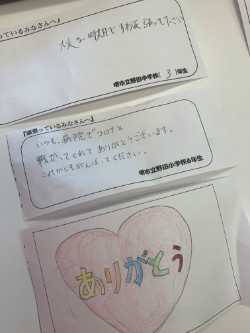 『頑張っているみなさんへ』
頑張って下さい
堺市立野田中学校( 3 )年生
『頑張っているみなさんへ』
いつも、病院でコロナと
戦ってくれてありがとうございます。
これからもがんばってください。
堺市立野田小学校6年生
ありがとう